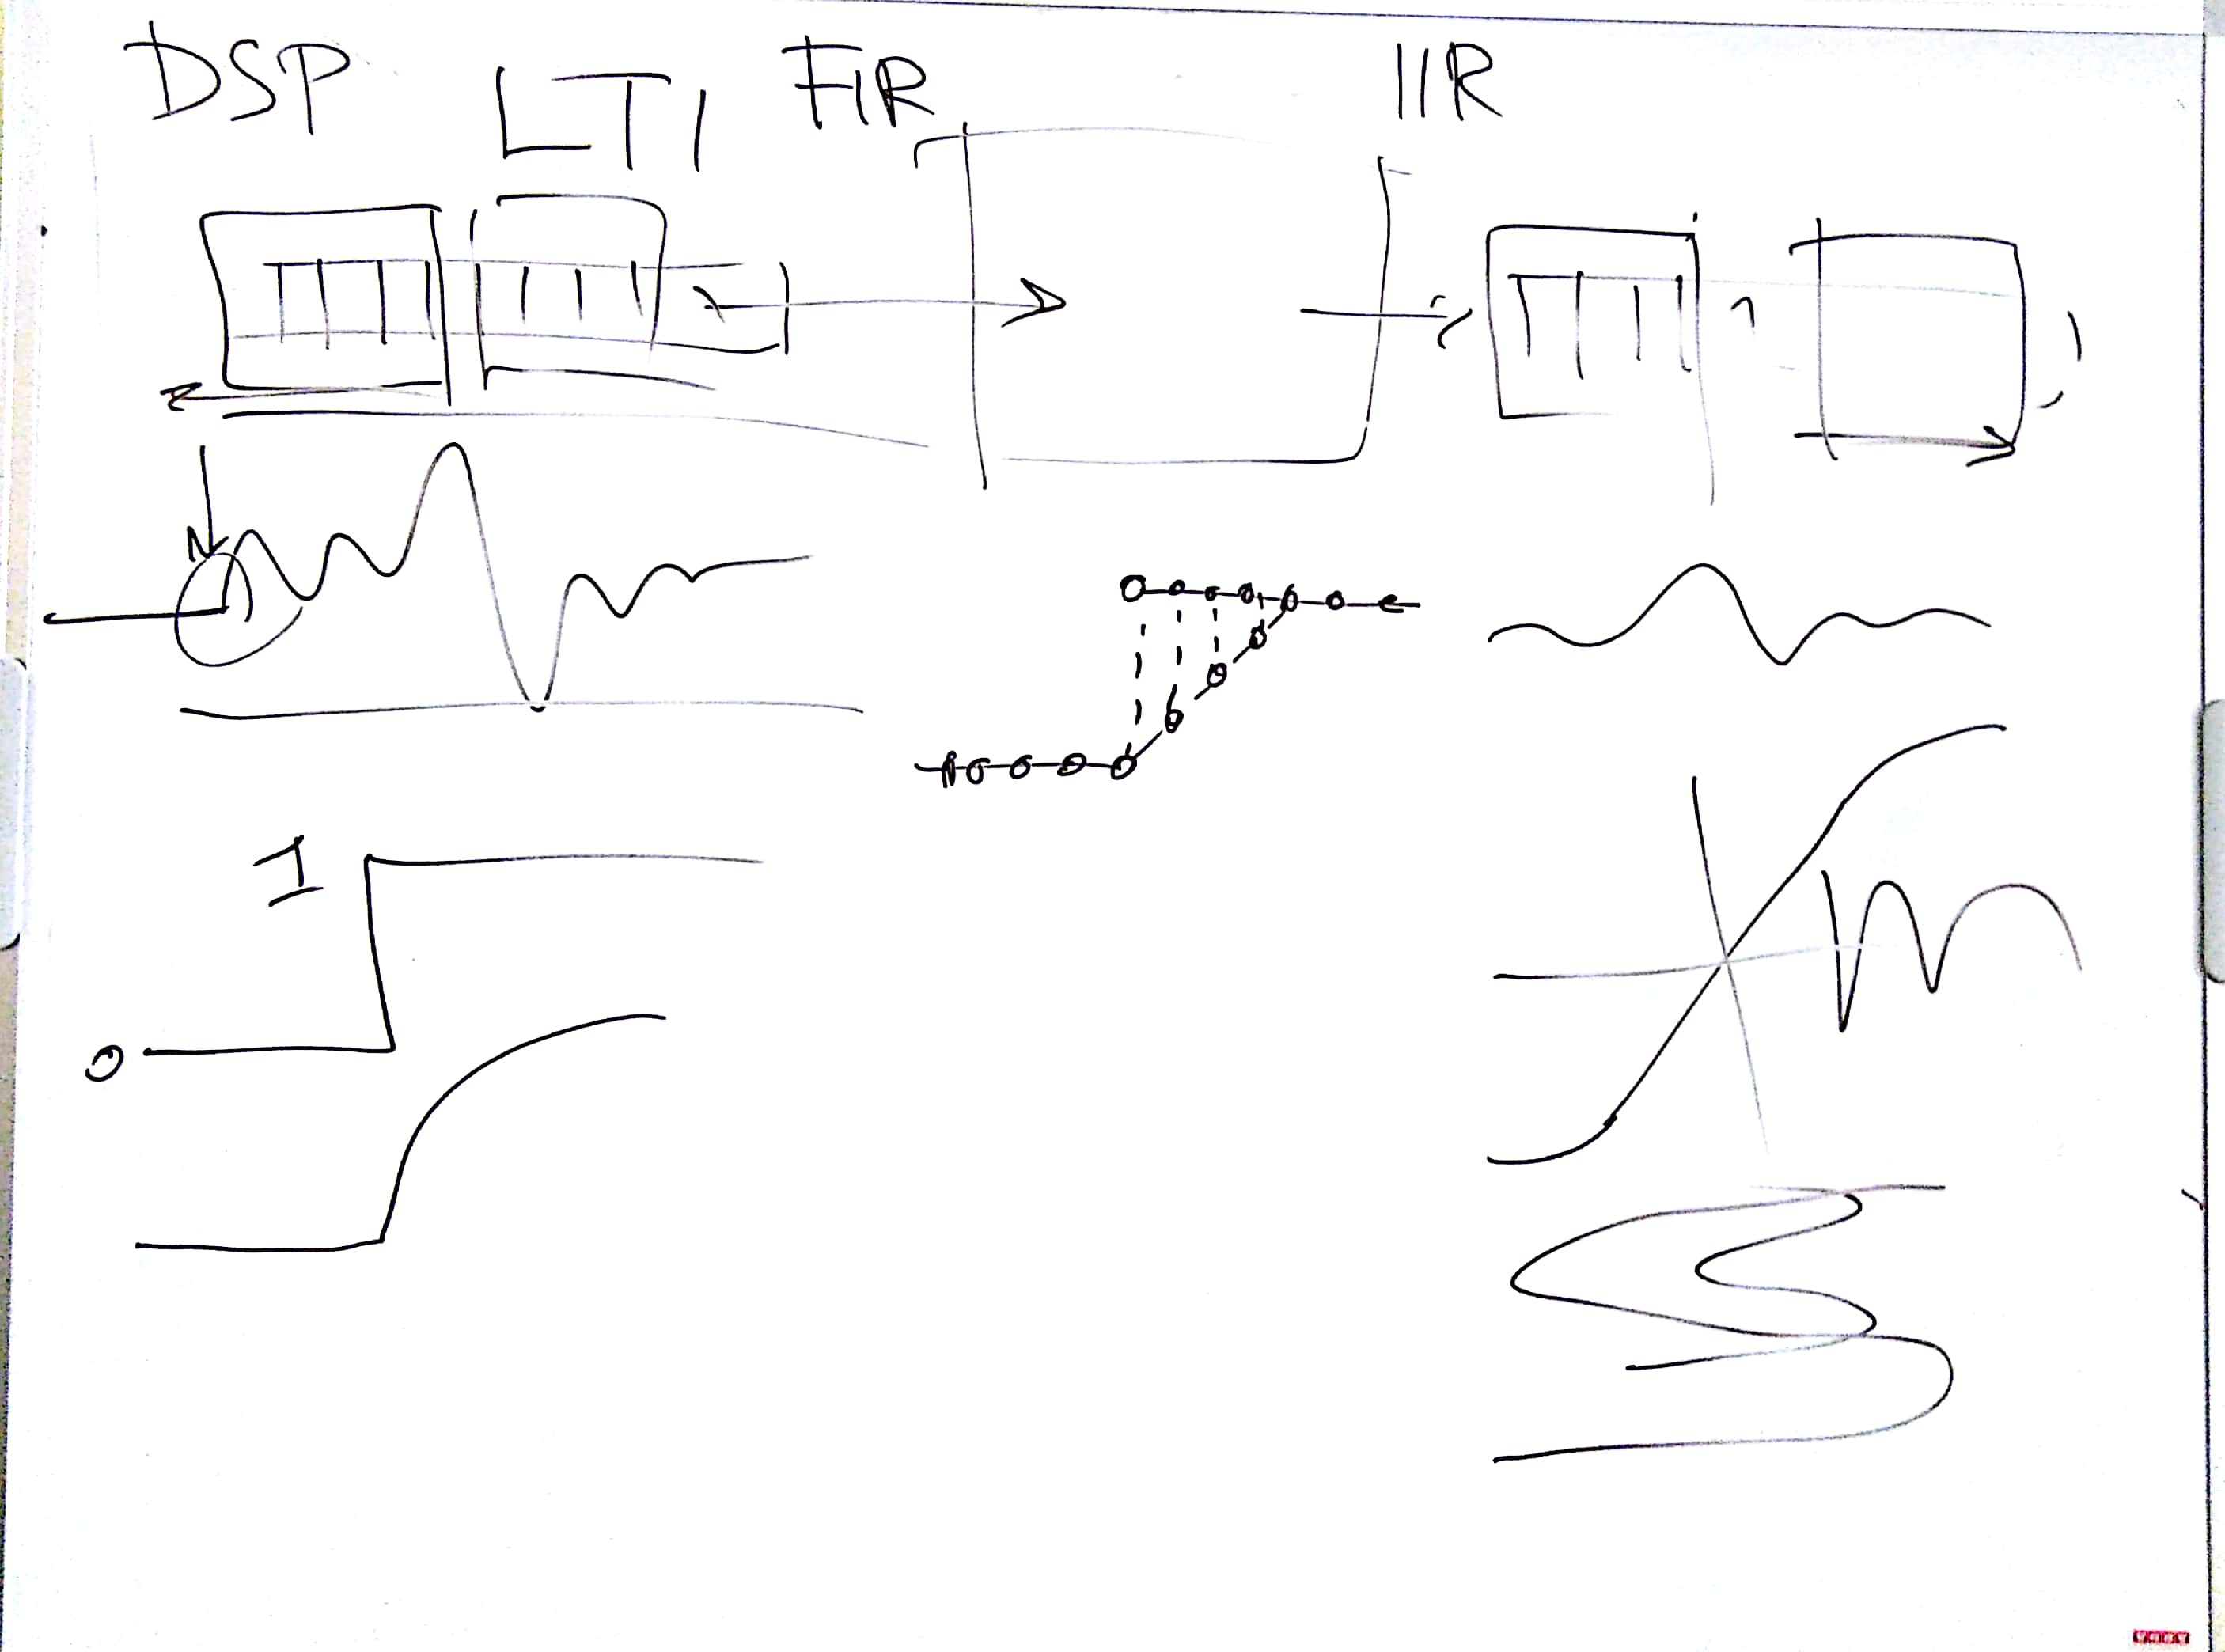 DSP LTI FIR IIR
1
0